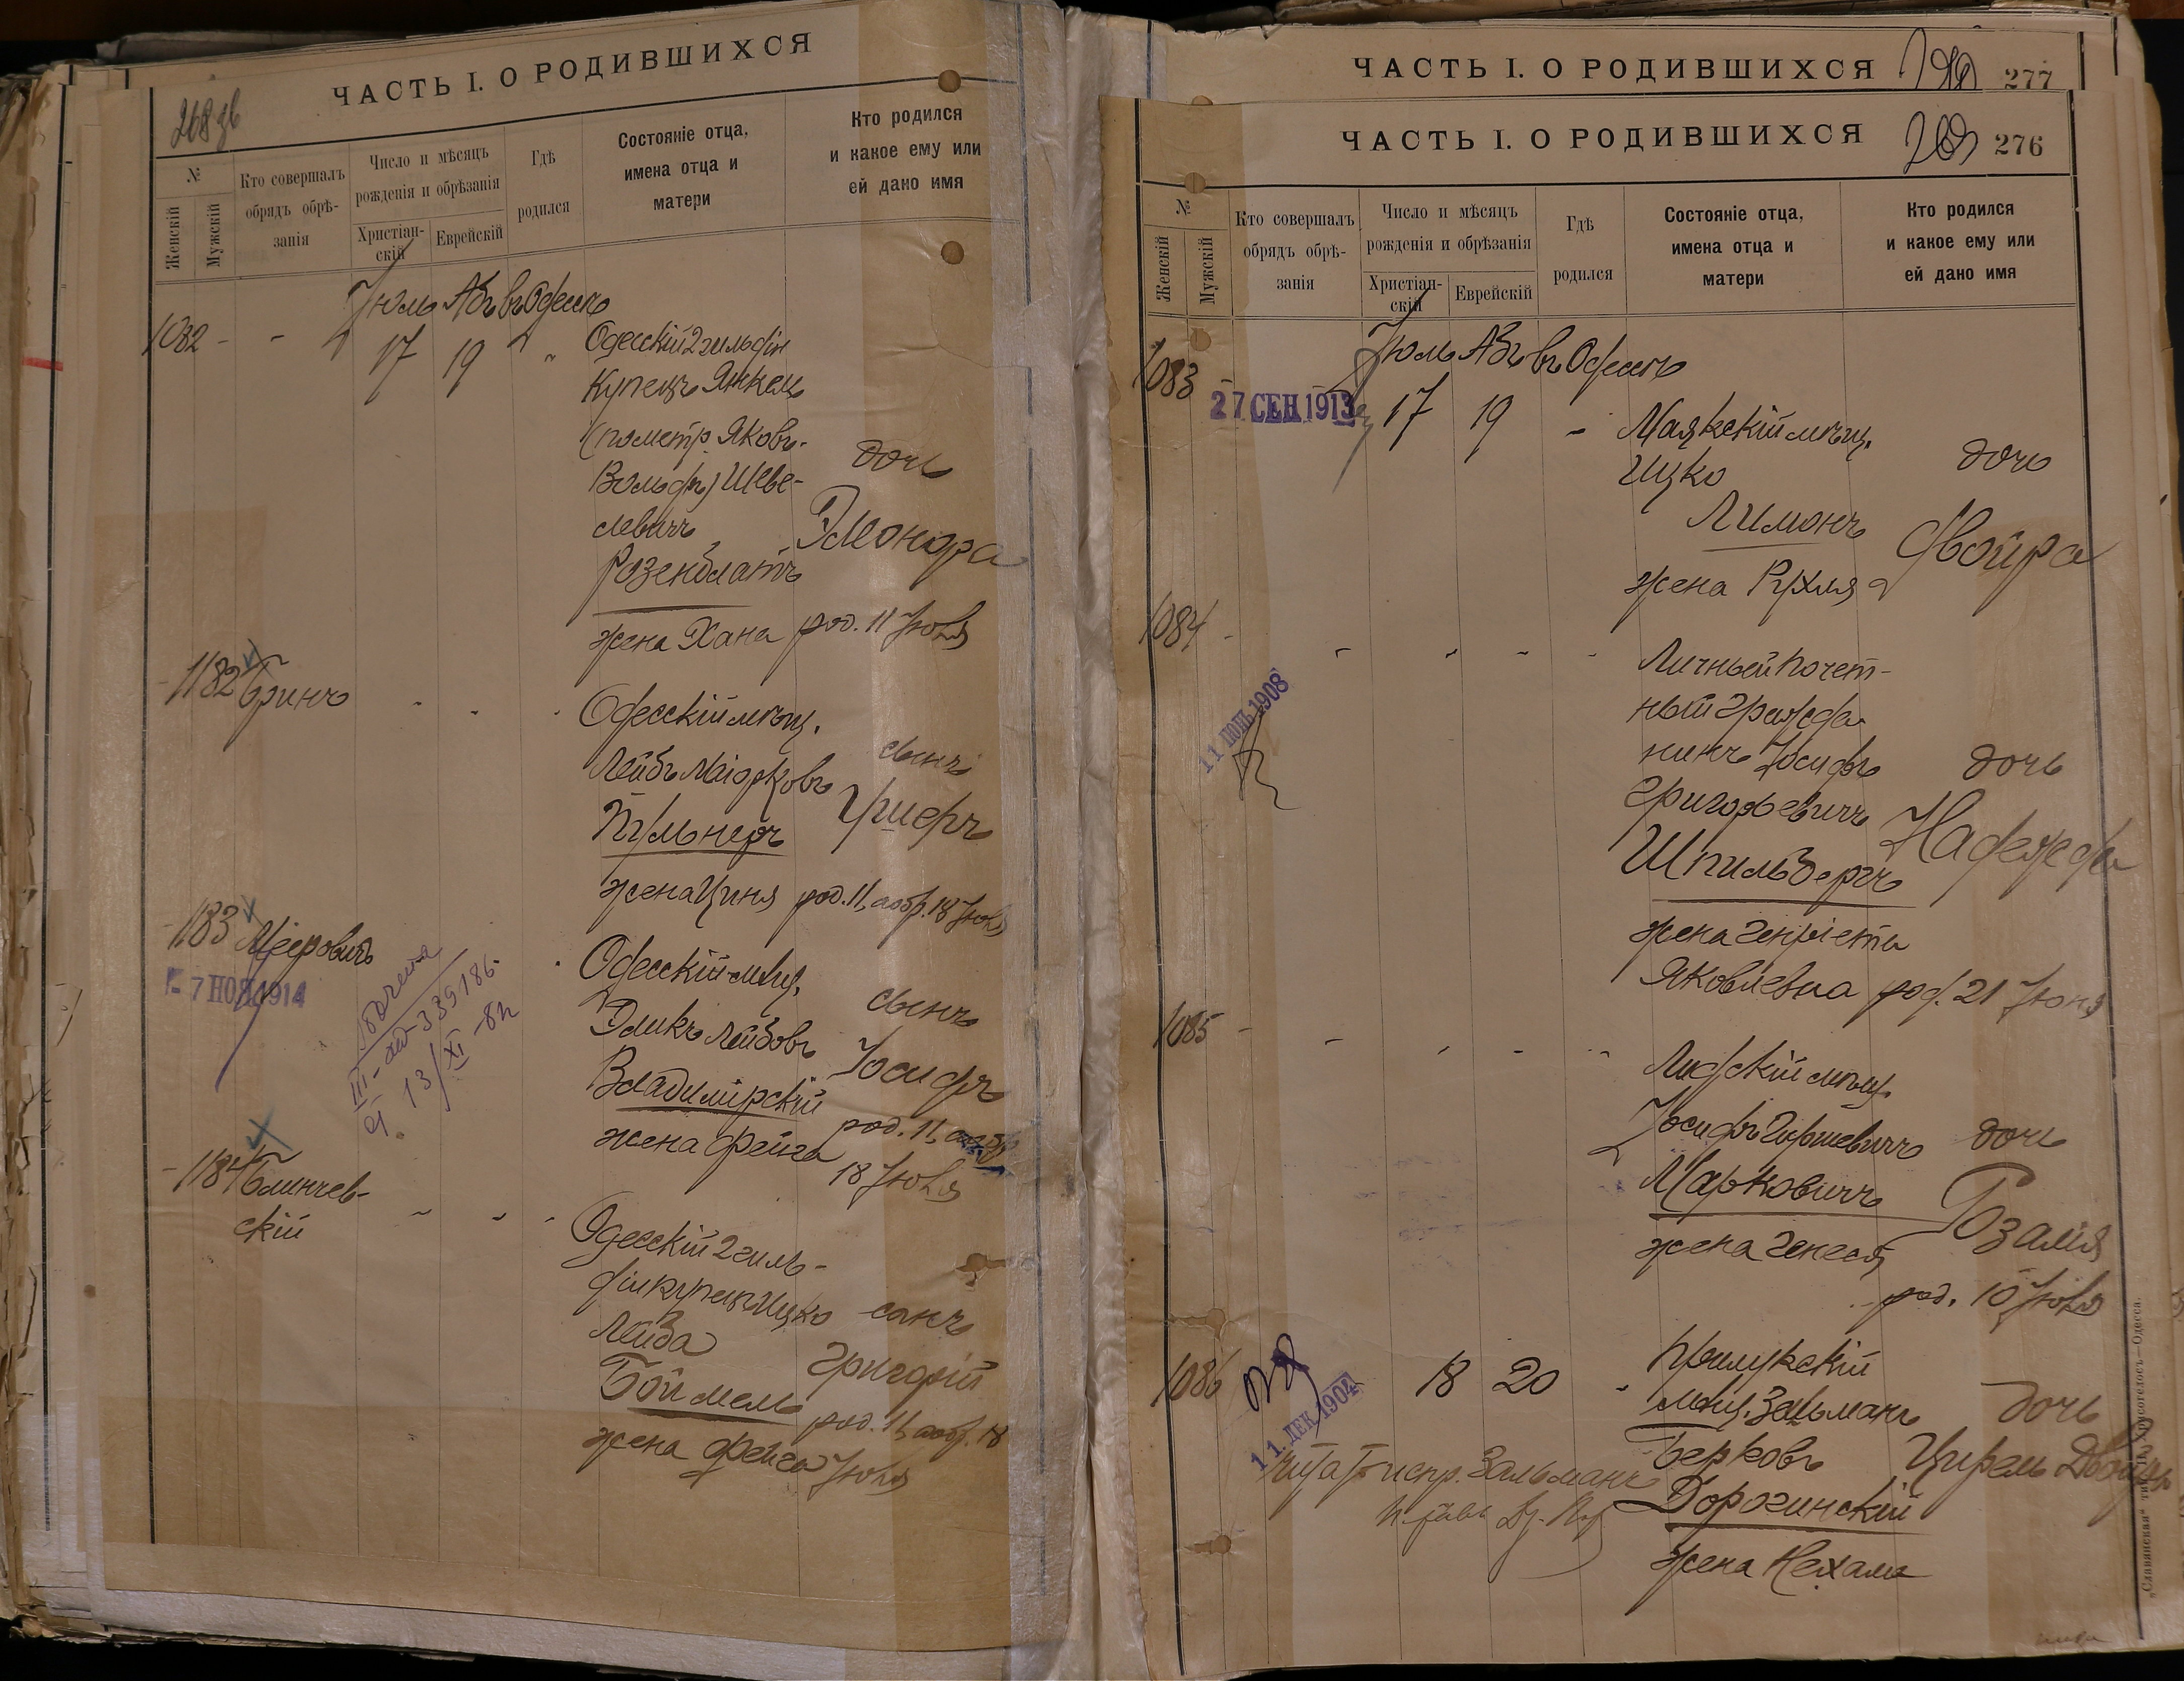 ЧАСТЬ I. О РОДИВШИХСЯ
268 об
№
Женскій
Мужскій
Кто совершалъ
обрядъ обрѣ-
занія
Число и мѣсяцъ
рожденія и обрѣзанія
Христіан-
скій
Еврейскій
Гдѣ
родился
Состояніе отца,
имена отца и
матери
Кто родился
и какое ему или
ей дано имя
Іюль Абъ въ Одессѣ
1082 - - 17 19 "
Одесскій 2 гильдіи
Купецъ Янкель
(по метр. Яковъ-
Вольфъ) Шеве-
левичъ
Розенблатъ
жена Хана
дочь
Элеонора
род. 11 Іюля
- 1182 Бринъ
Одесскій мѣщ.
Лейбъ Маіорковъ
Пульнеръ
жена Циня
сынъ
Ушеръ
род. 11, а обр. 18 Іюля
- 1183 Мееровичъ
7 НОЯ 1914
III-ая-339186
13/XI-8
Одесскій мѣщ.
Эликъ Лейбовъ
Владимірскій
жена Фейга
сынъ
Іосифъ
род. 11, а обр.
18 Іюля
- 1184 Блинчев-
скій
Одесскій 2 гиль-
діи купецъ Ицко
Лейба
Боймель
жена Фейга
сынъ
Григорій
род. 11, а обр. 18
Іюля
ЧАСТЬ I. О РОДИВШИХСЯ
277
ЧАСТЬ I. О РОДИВШИХСЯ
269 276
№
Женскій
Мужскій
Кто совершалъ
обрядъ обрѣ-
занія
Число и мѣсяцъ
рожденія и обрѣзанія
Христіан-
скій
Еврейскій
Гдѣ
родился
Состояніе отца,
имена отца и
матери
Кто родился
и какое ему или
ей дано имя
Іюль Абъ въ Одессѣ
1083 - 17 19 -
27 СЕН 1913
Маякскій мѣщ.
Ицко
Лимонъ
жена Рухля
дочь
Двойра
1084 -
11 ІЮЛЬ 1908
Личный почет-
ный гражда-
нинъ Іосифъ
Григорьевичъ
Шпильбергъ
жена Генріета
Яковлевна
дочь
Надежда
род. 21 Іюня
1085 -
Лидскій мѣщ.
Іосифъ Гиршевичъ
Марковичъ
жена Генеся
дочь
Розалія
род. 10 Іюля
1086 18 20
11. ДЕК. 1904
Прилукскій
мѣщ. Зальманъ
Берковъ
Дорогинскій
жена Нехама
дочь
Цирель Двойра
испр. Зальманъ
„Славянская“ тип. Н. Хрисогелосъ—Одесса.